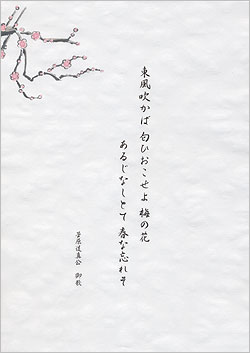 東風吹かば 匂ひおこせよ 梅の花
あるじなしとて 春な忘れそ
菅原道真公 御歌